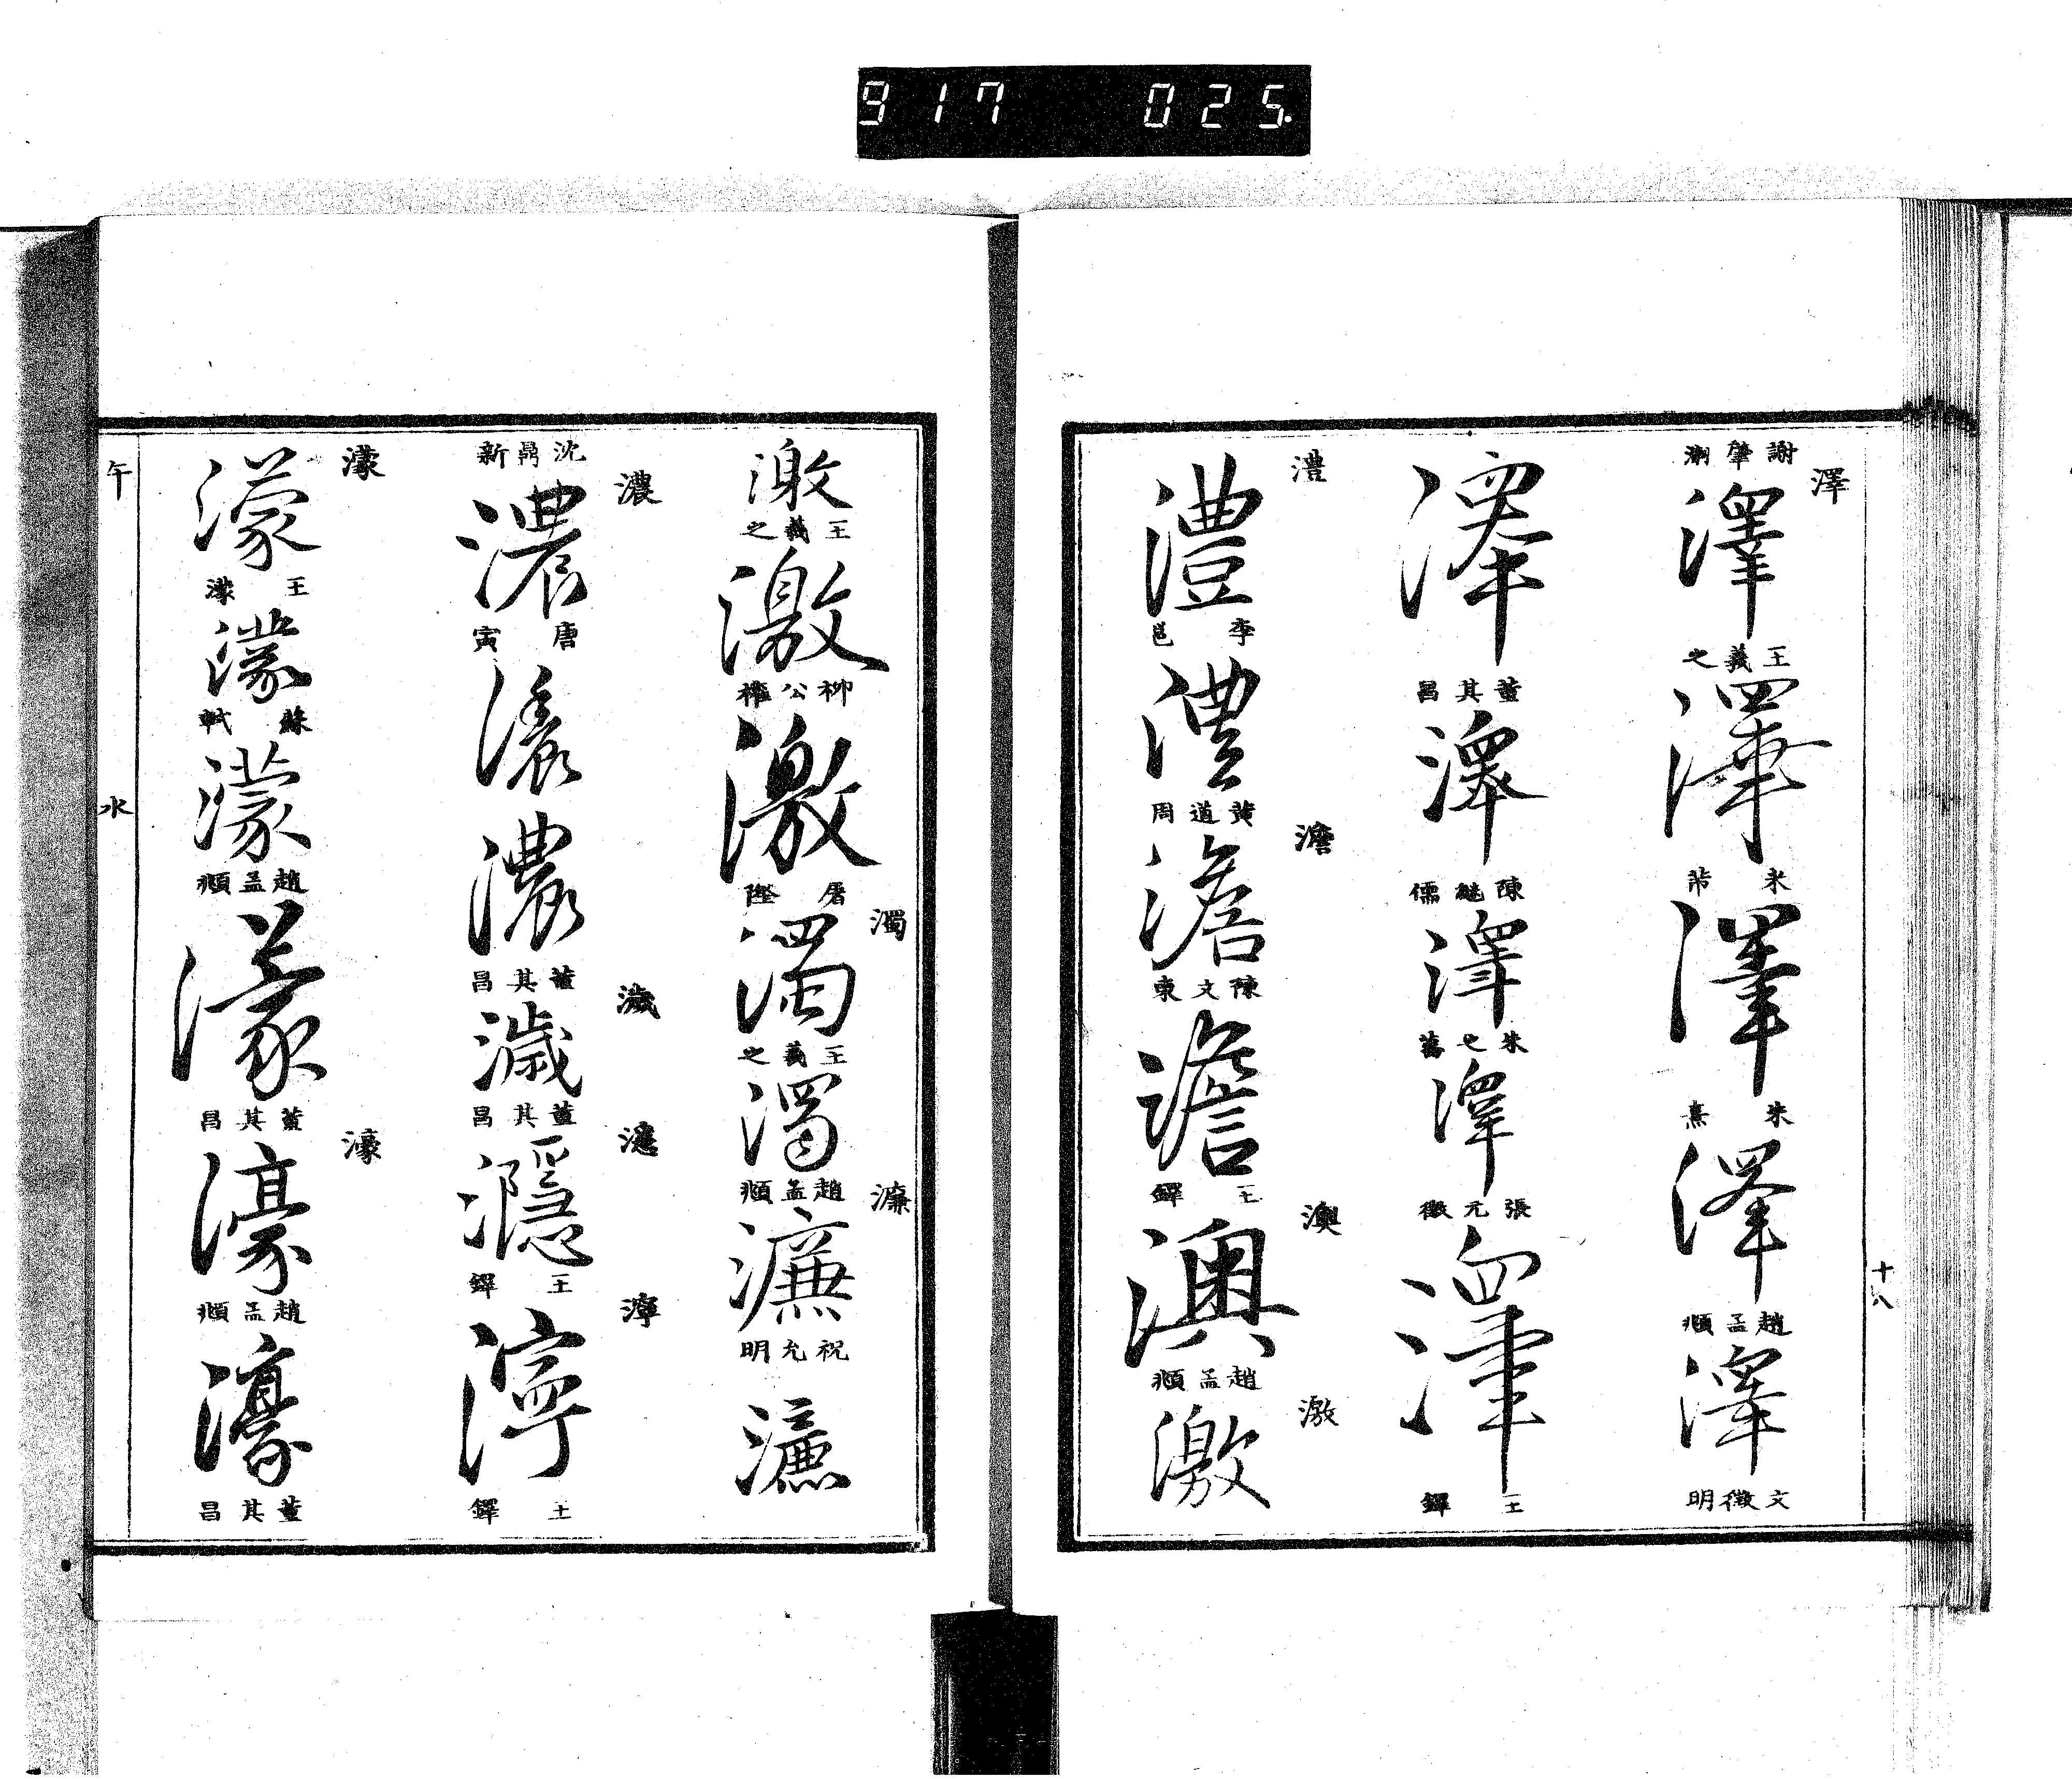 917 025.
澤
謝肇淛
澤
王羲之
澤
米芾
澤
朱熹
澤
趙孟頫
澤
文徵明
澤
董其昌
澤
陳繼儒
澤
朱之蕃
澤
張元徵
澤
王鐸
澧
澧
李邕
澧
黃道周
澹
澹
陳文東
澹
王鐸
澳
澳
趙孟頫
激
激
十八
激
王羲之
激
柳公權
激
唐隆
濁
濁
王羲之
濁
趙孟頫
濂
濂
祝允明
濂
沈鼎新
濃
濃
唐寅
濃
濃
董其昌
濊
濊
董其昌
濦
濦
王鐸
濘
濘
王鐸
濛
濛
王濛
濛
蘇軾
濛
趙孟頫
濛
董其昌
濠
濠
趙孟頫
濠
董其昌
午
水